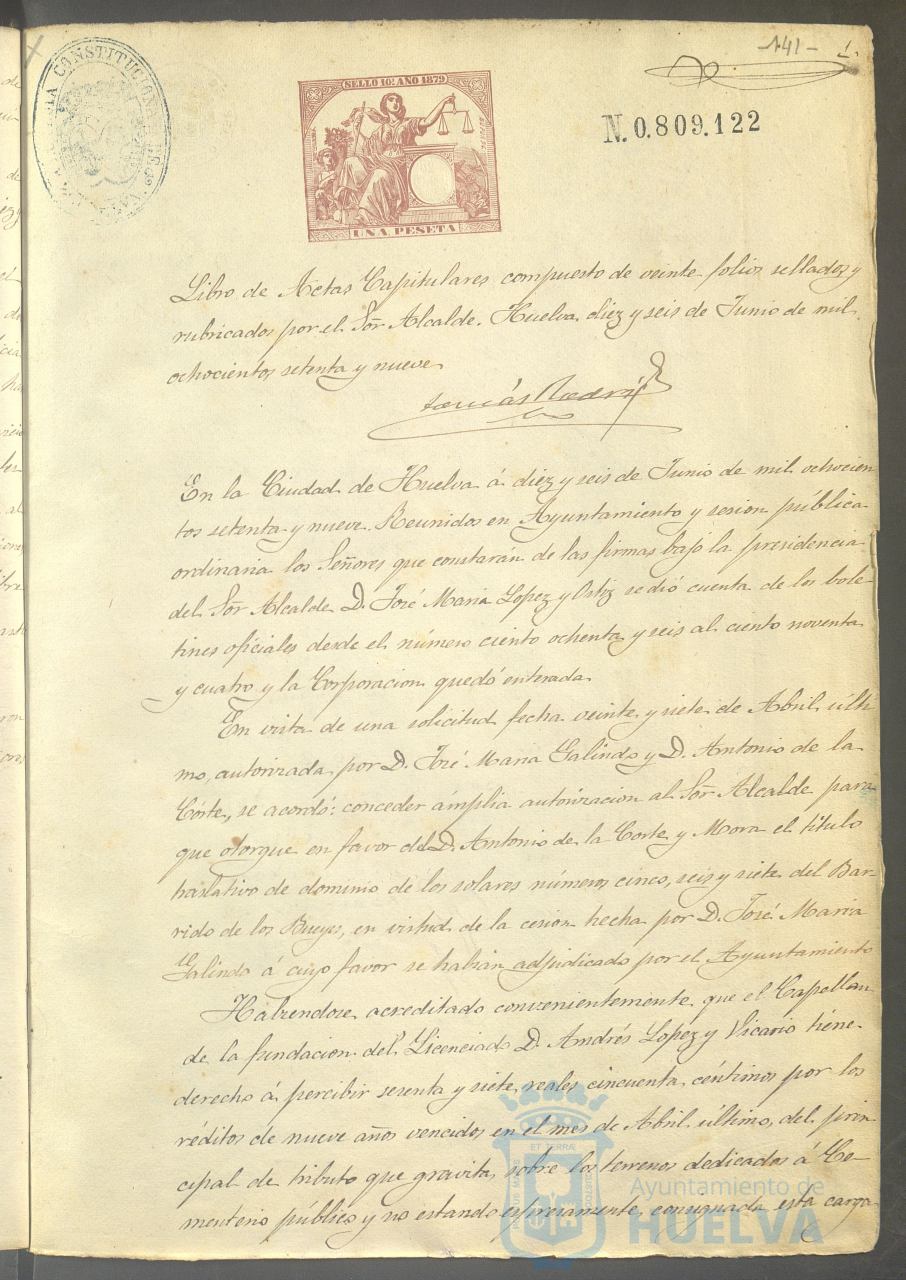 -141- 1.
CONSTITUCIONAL DE
SELLO 10º AÑO 1879
UNA PESETA
N. 0.809.122
Libro de Actas Capitulares compuesto de veinte folios sellados y
rubricados por el Sor Alcalde. Huelva diez y seis de Junio de mil
ochocientos setenta y nueve
Tomás Rodrig
En la Ciudad de Huelva á diez y seis de Junio de mil ochocien
tos setenta y nueve. Reunidos en Ayuntamiento y sesion pública
ordinaria los Señores que constarán de las firmas bajo la presidencia
del Sor Alcalde D. José Maria Lopez y Ortiz se dió cuenta de los bole
tines oficiales desde el número ciento ochenta y seis al ciento noventa
y cuatro y la Corporacion quedó enterada
En vista de una solicitud fecha veinte y siete de Abril últi
mo, autorizada por D. José Maria Galindo y D. Antonio de la
Córte, se acordó: conceder ámplia autorizacion al Sor Alcalde para
que otorgue en favor del D. Antonio de la Corte y Mora el título
traslativo de dominio de los solares números cinco, seis y siete del Bar-
rido de los Bueyes, en virtud de la cesion hecha por D. José Maria
Galindo á cuyo favor se habian adjudicado por el Ayuntamiento
Habiendose acreditado convenientemente que el Capellan
de la fundacion del Licenciado D. Andrés Lopez y Vicario tiene
derecho á percibir sesenta y siete reales cincuenta céntimos por los
réditos de nueve años vencidos en el mes de Abril último, del prin
cipal de tributo que gravita sobre los terrenos dedicados á Ce-
menterio público y no estando espresamente consignada esta carga
Ayuntamiento de
HUELVA